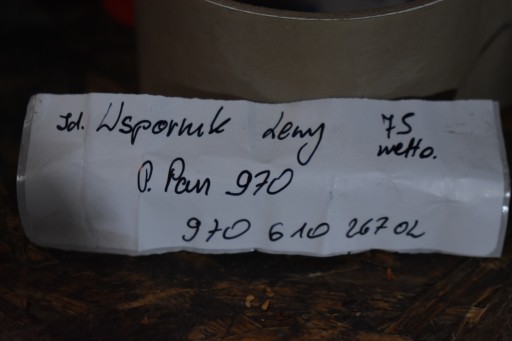 Jd. Wspornik Lewy 75
netto.
P. Pan 970
970 610 267 02